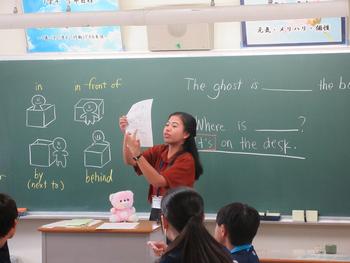 元気・メリハリ・個性
in
in front of
by
(next to)
behind
The ghost is ______ the bo
Where is ______?
It's on the desk.